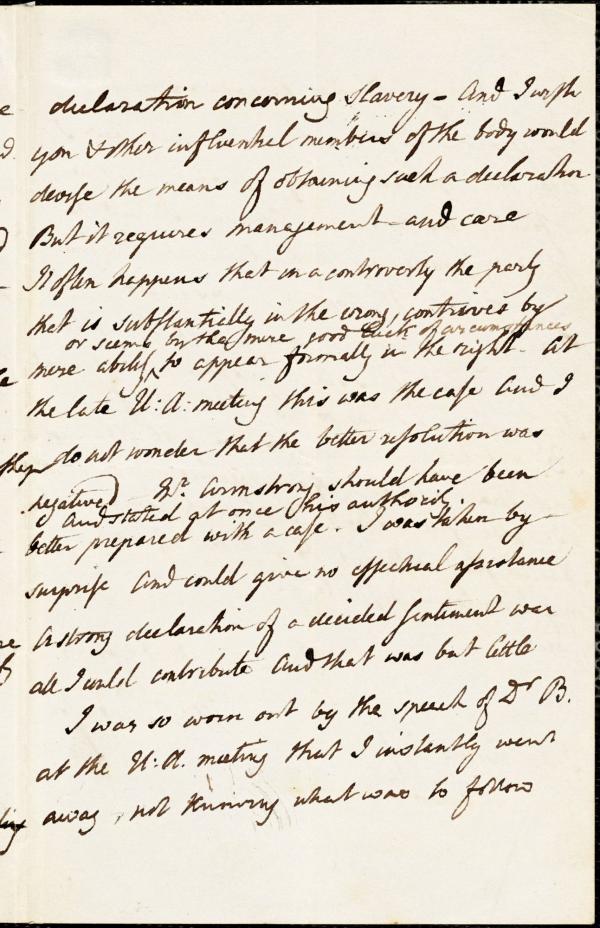 declaration concerning slavery - And I wish
you & other influential members of the body would
devise the means of obtaining such a declaration
But it requires management and care
It often happens that in a controversy the party
that is substantially in the wrong, contrives by
or seems by the mere good luck of circumstances
mere ability to appear formally in the right. At
the late U: A: meeting this was the case and I
do not wonder that the better resolution was
negatived Mr. Armstrong should have been
and stated at once his authority
better prepared with a case. I was taken by
surprise and could give no effectual assistance
A strong declaration of a decided sentiment was
all I could contribute and that was but little
I was so worn out by the speech of Dr B.
at the U: A. meeting that I instantly went
away, not knowing what was to follow